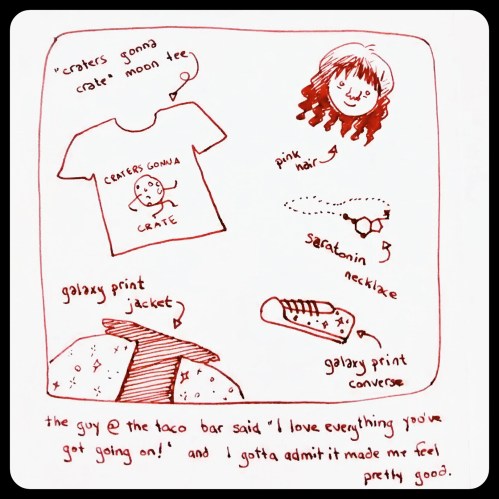 "craters gonna
crate" moon tee
CRATERS GONNA
CRATE
pink
hair
saratonin
necklace
galaxy print
jacket
galaxy print
converse
the guy @ the taco bar said "I love everything you've
got going on!" and I gotta admit it made me feel
pretty good.